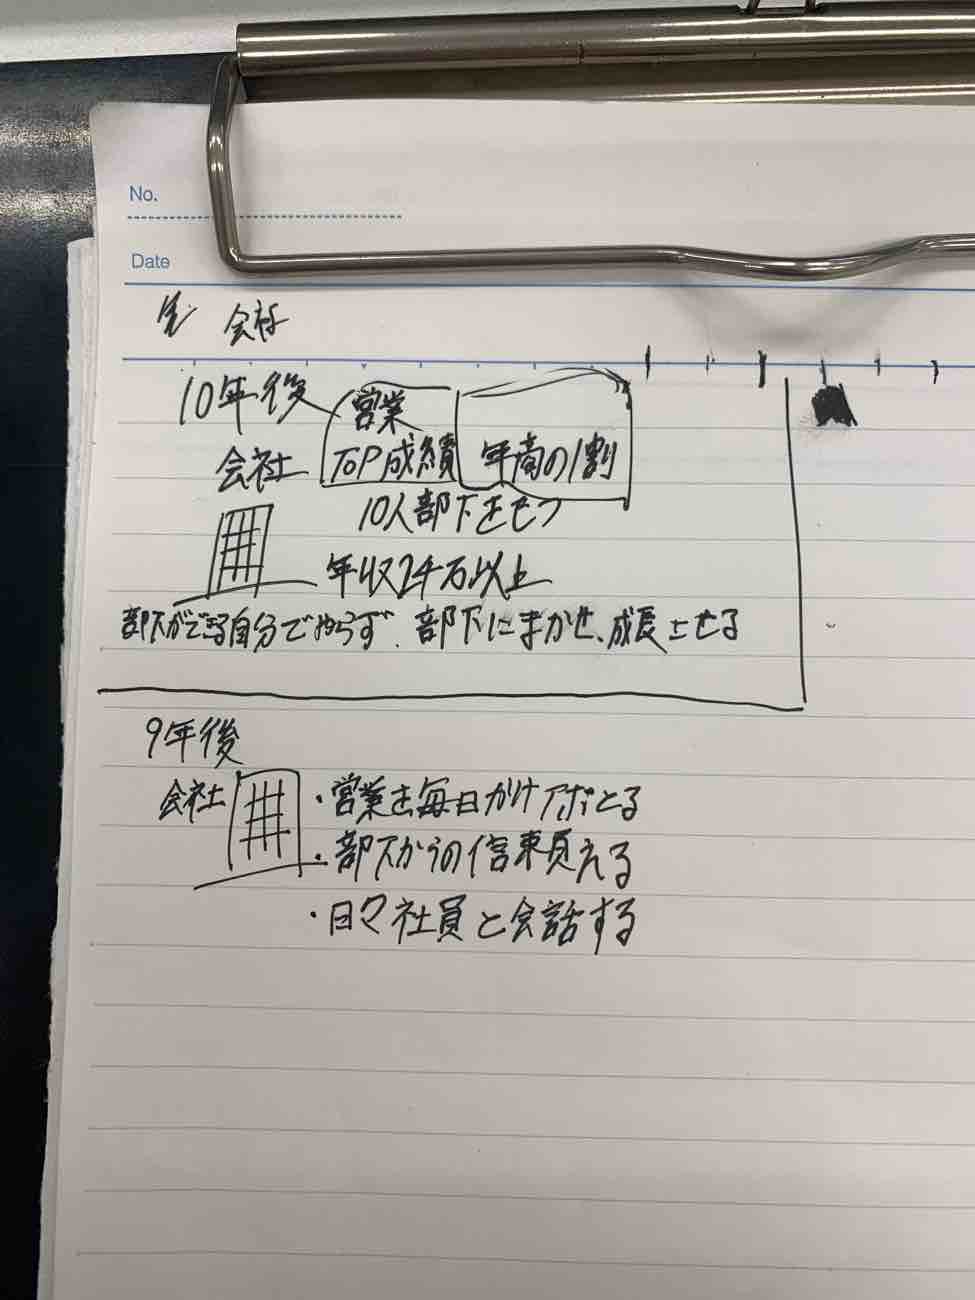 No.
Date
会社
10年後
会社
営業
TOP成績
年商の1割
10人部下をもつ
年収2千万以上
部下ができる自分でやらず、部下にまかせ、成長させる
9年後
会社
・営業を毎日かけアポとる
・部下からの信頼得る
・日々社員と会話する